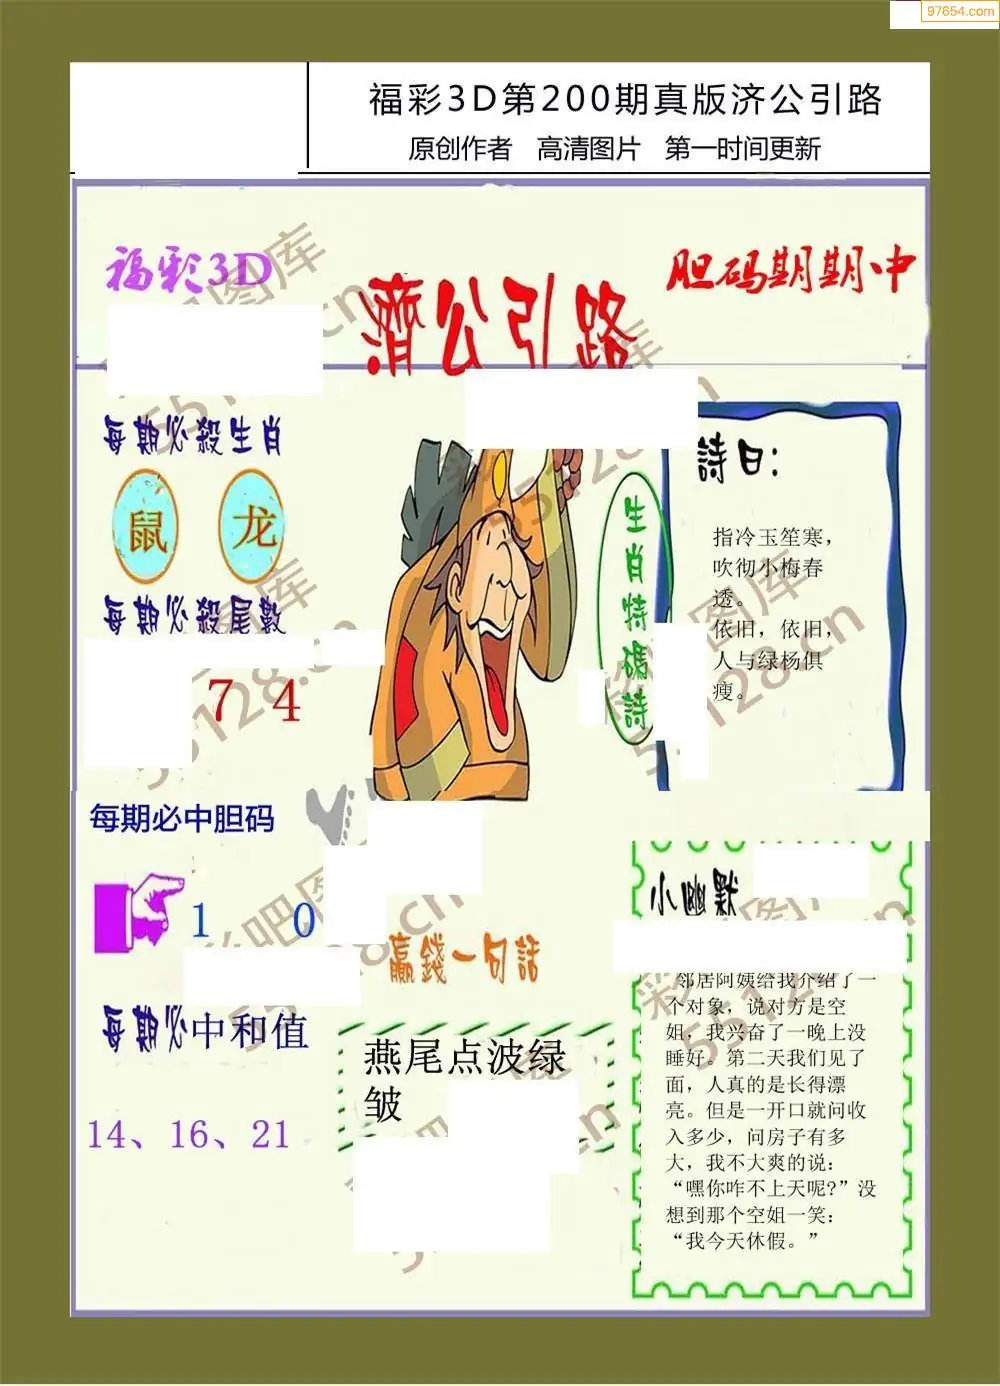 97654.com
福彩3D第200期真版济公引路
原创作者 高清图片 第一时间更新
福彩3D
濟公引路
胆码期期中
每期必殺生肖
鼠 龙
每期必殺尾數
7 4
每期必中胆码
1 0
每期必中和值
14、16、21
生肖特碼詩
詩曰:
指冷玉笙寒，
吹彻小梅春
透。
依旧，依旧，
人与绿杨俱
瘦。
贏錢一句話
燕尾点波绿
皱
小幽默
邻居阿姨给我介绍了一
个对象，说对方是空
姐，我兴奋了一晚上没
睡好。第二天我们见了
面，人真的是长得漂
亮。但是一开口就问收
入多少，问房子有多
大，我不大爽的说：
“嘿你咋不上天呢?”没
想到那个空姐一笑：
“我今天休假。”